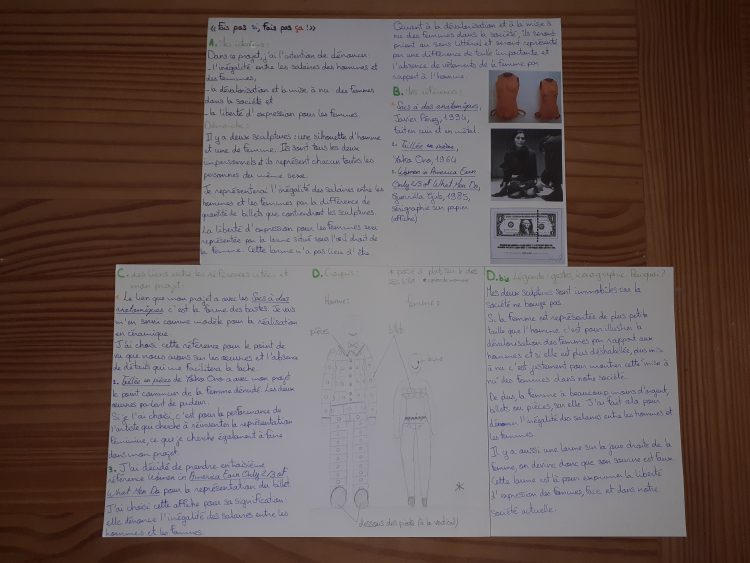 « Fais pas si, fais pas ça ! »
A. Les idées :
Dans ce projet, j'ai l'intention de dénoncer :
- l'inégalité entre les salaires des hommes et
des femmes,
- la dévalorisation et la mise à nu des femmes
dans la société et
- la liberté d'expression pour les femmes.
Démarche :
Il y a deux sculptures : une silhouette d'homme
et une de femme. Ils sont tous les deux
impersonnels et ils représentent chacun toutes les
personnes du même sexe.
Je représenterai l'inégalité des salaires entre les
hommes et les femmes par la différence de
quantité de billets que contiendront les sculptures.
La liberté d'expression pour les femmes sera
représentée par la larme situé sous l'œil droit de
la femme. Cette larme n'a pas lieu d'être.
Quant à la dévalorisation et à la mise à
nu des femmes dans la société, ils seront
prient au sens littéral et seront représenté
par une différence de taille importante et
l'absence de vêtements de la femme par
rapport à l'homme.
B. Les références :
1. Sacs à dos anatomiques,
Javier Pérez, 1994,
fait en cuir et en métal.
2. Taillée en pièce,
Yoko Ono, 1964
3. Women in America Earn
Only 2/3 of What Men Do,
Guerrilla Girls, 1985,
sérigraphie sur papier
(affiche)
C. des liens entre les références citées et
mon projet :
1. Le lien que mon projet a avec les Sacs à dos
anatomiques c'est la forme des bustes. Je vais
m'en servir comme modèle pour la réalisation
en céramique.
J'ai choisi cette référence pour le point de
vue que nous avons sur les œuvres et l'absence
de détails qui me facilitera la tache.
2. Taillée en pièces de Yoko Ono a avec mon projet
le point commun de la femme dénudé. Les deux
œuvres parlent de pudeur.
Si je l'ai choisi, c'est pour la performance de
l'artiste qui cherche à réinventer la représentation
féminine, ce que je cherche également à faire
dans mon projet.
3. J'ai décidé de prendre en troisième
référence Women in America Earn Only 2/3 of
What Men Do pour la représentation du billet.
J'ai choisi cette affiche pour sa signification :
elle dénonce l'inégalité des salaires entre les
hommes et les femmes.
D. Croquis :
* posé à plat sur le dos
Homme :
Femme :
pièces
billet
larme
*
dessous des pieds (à la vertical)
D.bis Légende : gestes, iconographie. Pourquoi ?
Mes deux sculptures sont immobiles car la
société ne bouge pas.
Si la femme est représentée de plus petite
taille que l'homme c'est pour illustrer la
dévalorisation des femmes par rapport aux
hommes et si elle est plus déshabillée, plus mis
à nu c'est justement pour montrer cette "mise à
nu" des femmes dans notre société.
De plus la femme à beaucoup moins d'argent,
billets ou pièces, sur elle. J'ai fait cela pour
dénoncer l'inégalité des salaires entre les hommes et
les femmes.
Il y a aussi une larme sur la joue droite de la
femme, on devine donc que son sourire est faux.
Cette larme est là pour exprimer la liberté
d'expression des femmes, face et dans notre
société actuelle.